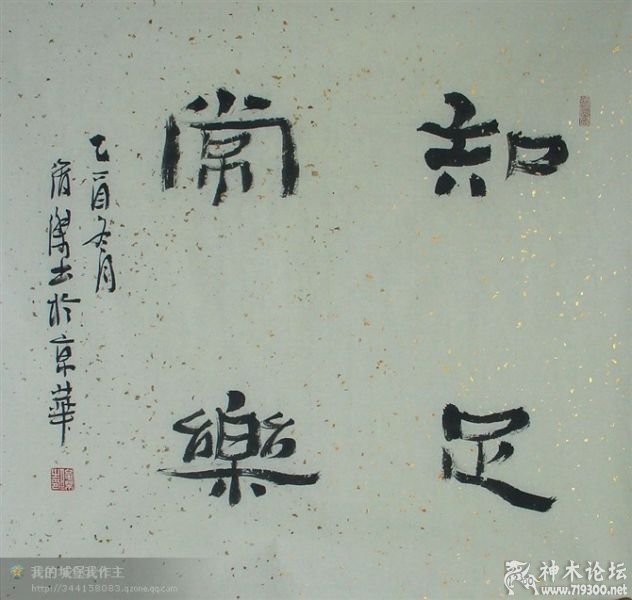 知足
常樂
乙酉冬月
書於京華
我的城堡我作主
(http://344158083.qzone.qq.com)
神木论坛
www.719300.net